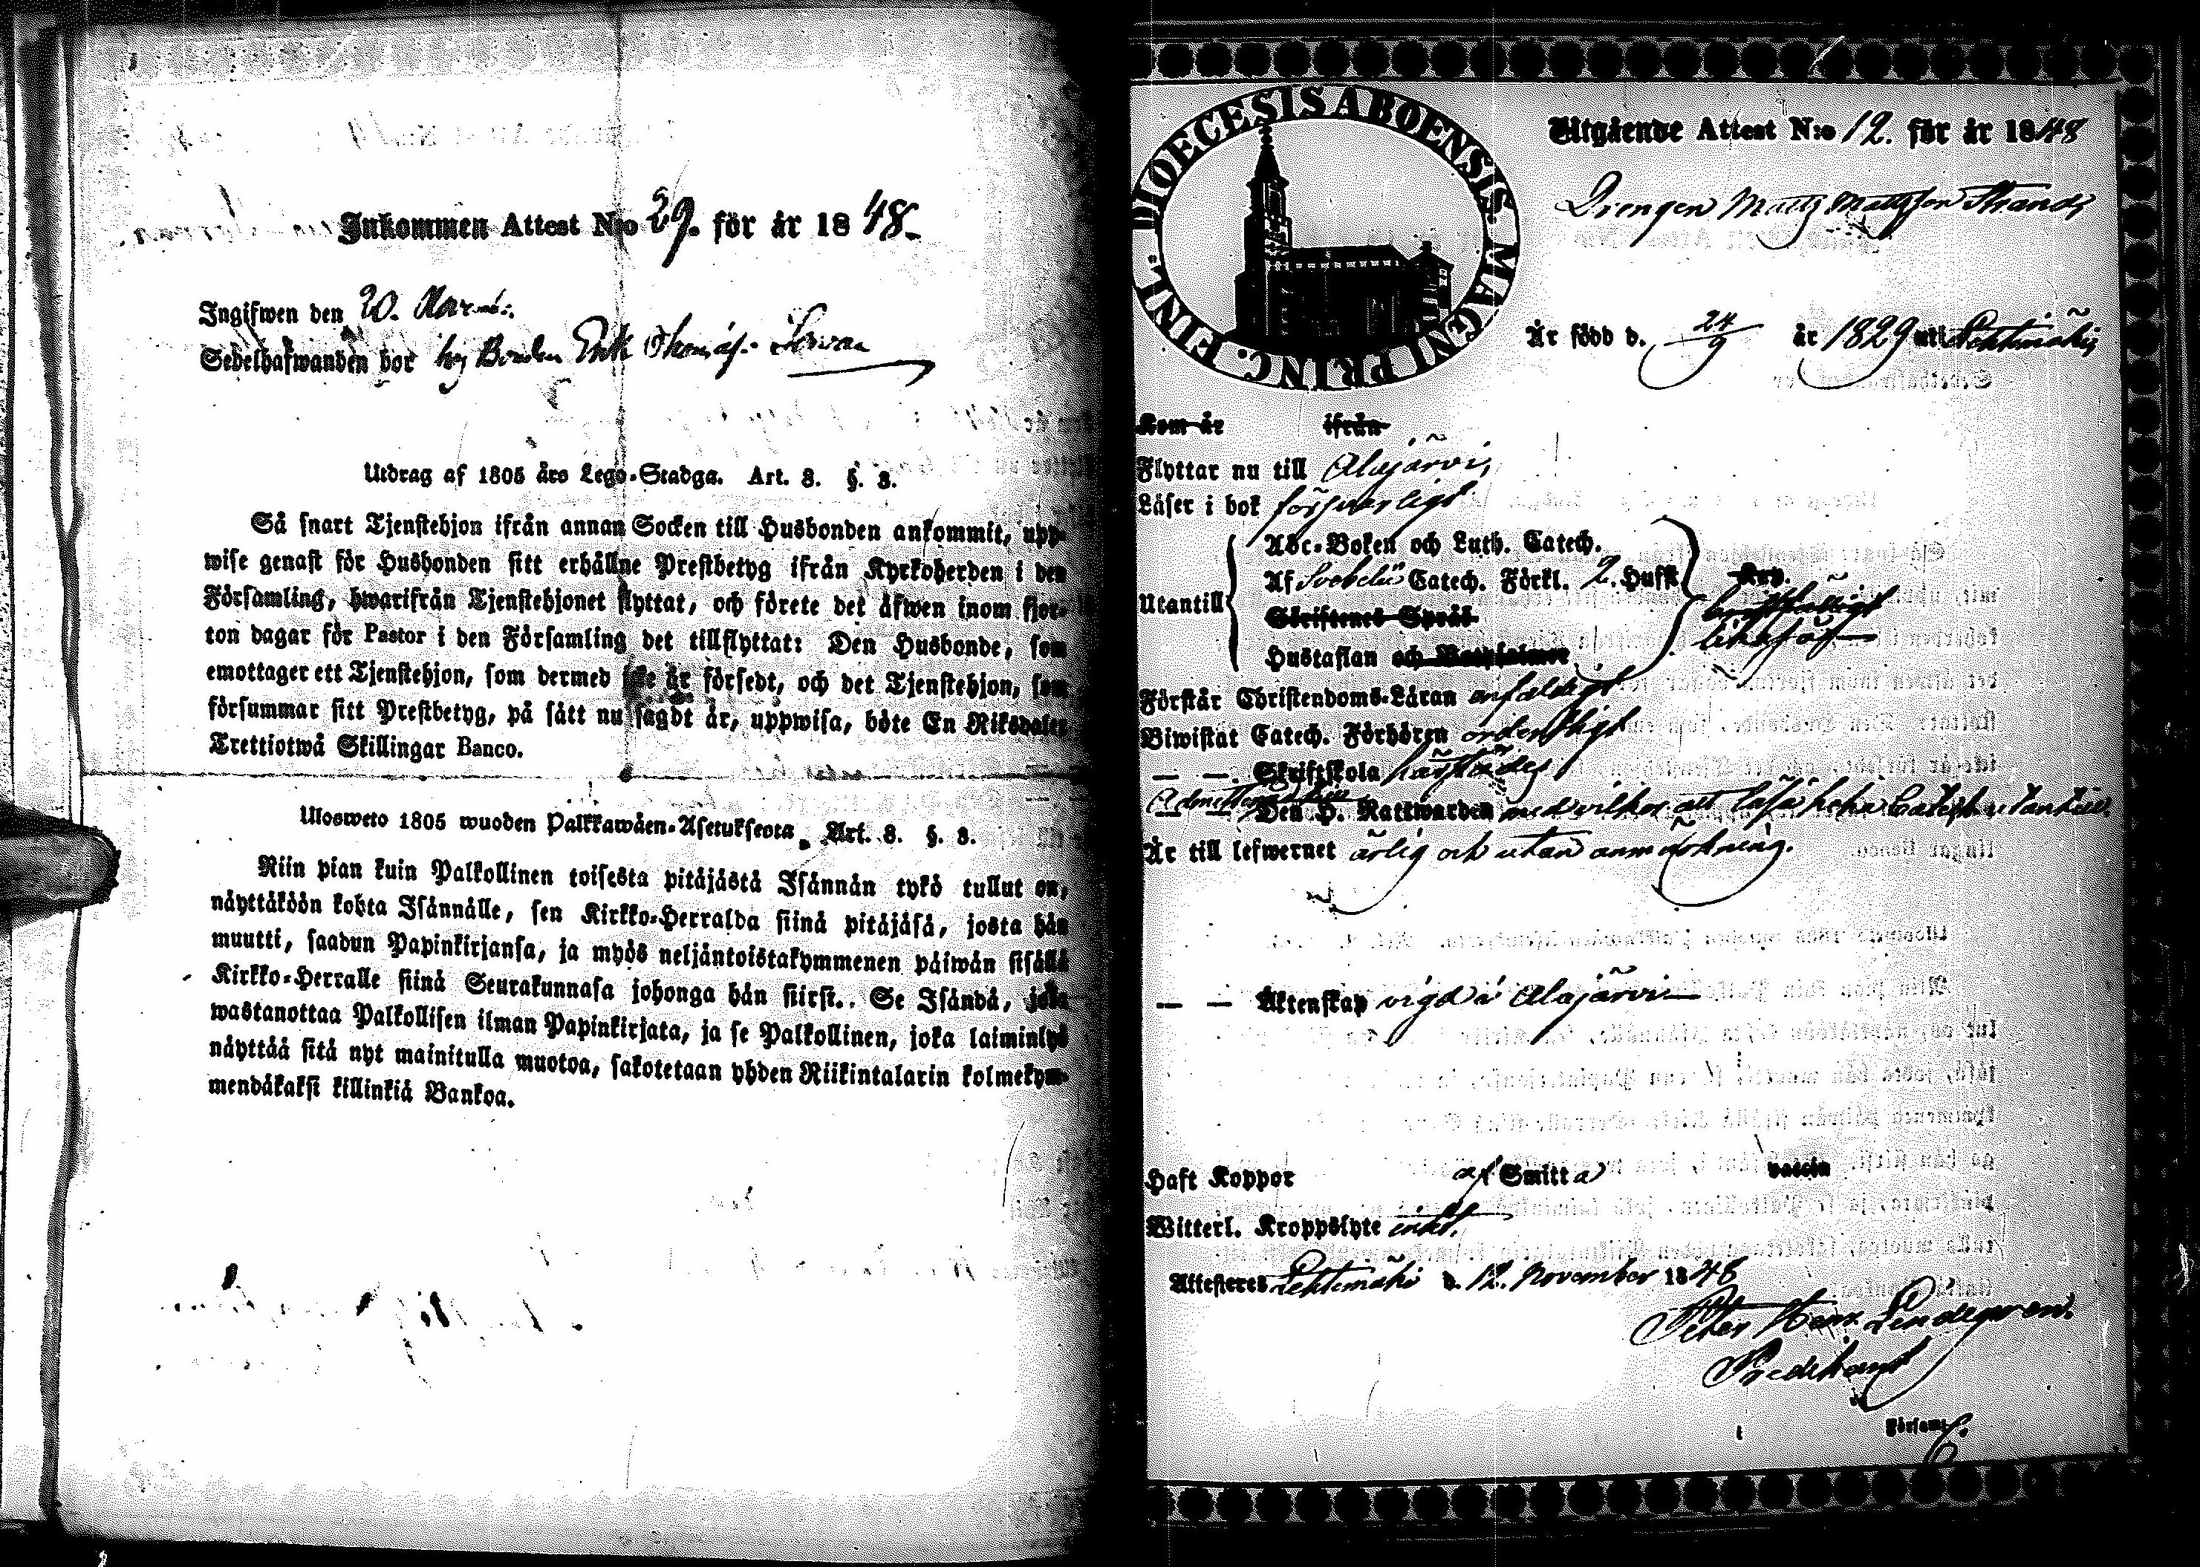 Inkommen Attest N:o 29. för år 1848.
Ingifwen den 20.
Sedelhafwanden bor hoj Bonden Erik Thomæs:
Utdrag af 1805 års Lego-Stadga. Art. 8. §. 3.
Så snart Tjenstehjon ifrån annan Socken till Husbonden ankommit, upp-
wise genast för Husbonden sitt erhållne Prestbetyg ifrån Kyrkoherden i den
Församling, hwarifrån Tjenstehjonet flyttat, och förete det äfwen inom fjor-
ton dagar för Pastor i den Församling det tillflyttat: Den Husbonde, som
emottager ett Tjenstehjon, som dermed icke är försedt, och det Tjenstehjon, som
försummar sitt Prestbetyg, på sätt nu sagdt är, uppwisa, böte En Riksdaler
Trettiotwå Skillingar Banco.
Ulosweto 1805 wuoden Palkkawäen-Asetuksesta, Art. 8. §. 3.
Niin pian kuin Palkollinen toisesta pitäjästä Isännän tykö tullut on,
näyttäköön kohta Isännälle, sen Kirkko-Herralda siinä pitäjäsä, josta hän
muutti, saadun Papinkirjansa, ja myös neljäntoistakymmenen päiwän sisällä
Kirkko-Herralle siinä Seurakunnasa johonga hän siirst.. Se Isändä, joka
wastanottaa Palkollisen ilman Papinkirjata, ja se Palkollinen, joka laiminlyö
näyttää sitä nyt mainitulla muotoa, sakotetaan yhden Riikintalarin kolmekym-
mendäkaksi killinkiä Bankoa.
FINL. DIOECESIS ABOENSIS MAGNI PRINC.
Utgående Attest N:o 12. för år 1848
Drengen Matts Mattsson Strand,
Är född d. 24/9 år 1829 uti Lehtimäki,
Kom år ifrån
Flyttar nu till Alajärvi,
Läser i bok försvarligt
Utantill
Abc-Boken och Luth. Catech.
Af Svebelii Catech. Förkl. 2. Hufst.
Skriftenes Språk
Hustaflan och
likaså
Förstår Christendoms-Läran enfaldigt
Biwistat Catech. Förhören ordentligt
— — Skriftskola härstädes
— — Den H. Nattwarden med vilkor att läsa hela Catech. utantill.
Är till lefwernet ärlig och utan anmärkning.
— — Äktenskap vigd i Alajärvi
Haft Koppor af Smitta vaccin
Witterl. Kroppslyte intet.
Attesteres Lehtimäki d. 12. November 1848
Peter Henr. Lindegren.
Predikant
Församl.